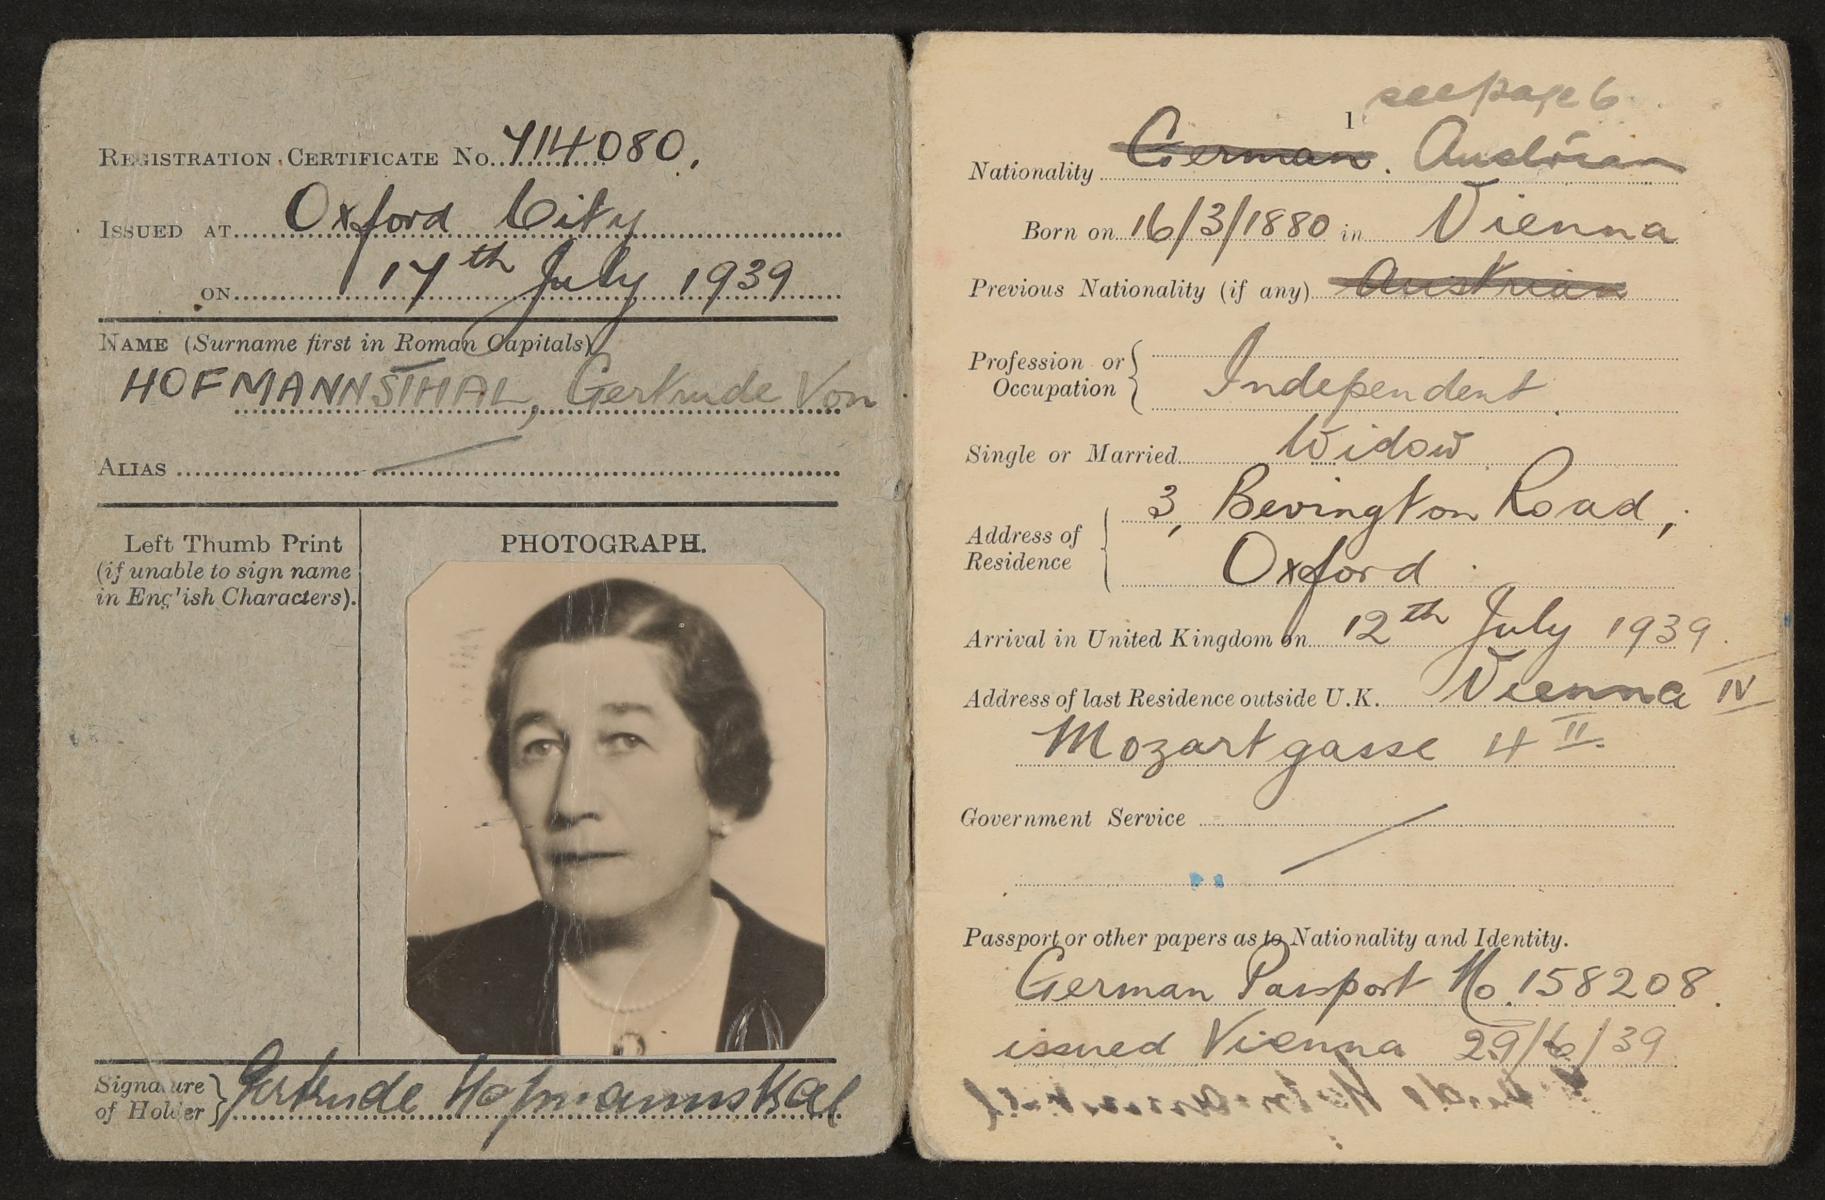 REGISTRATION CERTIFICATE No. 714080.
ISSUED AT Oxford City
ON 17th July 1939
NAME (Surname first in Roman Capitals)
HOFMANNSTHAL, Gertrude Von
ALIAS
Left Thumb Print
(if unable to sign name
in English Characters).
PHOTOGRAPH.
Signature
of Holder } Gertrude Hofmannsthal
see page 6
1
Nationality German. Austrian
Born on 16/3/1880 in Vienna
Previous Nationality (if any) Austrian
Profession or
Occupation } Independent.
Single or Married Widow
Address of
Residence { 3, Bevington Road,
Oxford.
Arrival in United Kingdom on 12th July 1939.
Address of last Residence outside U.K. Vienna IV
Mozartgasse 4 II.
Government Service
Passport or other papers as to Nationality and Identity.
German Passport No. 158208.
issued Vienna 29/6/39